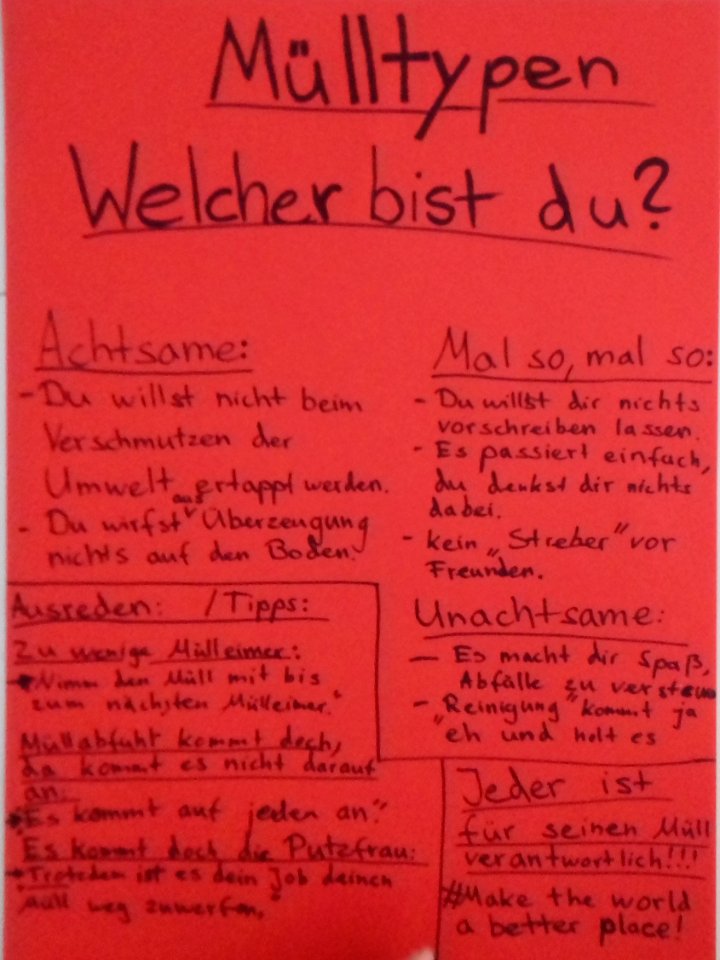 Mülltypen
Welcher bist du?
Achtsame:
- Du willst nicht beim
Verschmutzen der
Umwelt ertappt werden.
- Du wirfst aus Überzeugung
nichts auf den Boden.
Mal so, mal so:
- Du willst dir nichts
vorschreiben lassen.
- Es passiert einfach,
du denkst dir nichts
dabei.
- kein „Streber" vor
Freunden.
Unachtsame:
- Es macht dir Spaß,
Abfälle zu verstreuen
- „Reinigung" kommt ja
eh und holt es
Ausreden: / Tipps:
Zu wenige Mülleimer:
→ "Nimm den Müll mit bis
zum nächsten Mülleimer."
Müllabfuht kommt doch,
da kommt es nicht darauf
an:
→ "Es kommt auf jeden an."
"Es kommt doch die Putzfrau:
→ Trotzdem ist es dein Job deinen
Müll weg zuwerfen."
Jeder ist
für seinen Müll
verantwortlich!!!
#Make the world
a better place!